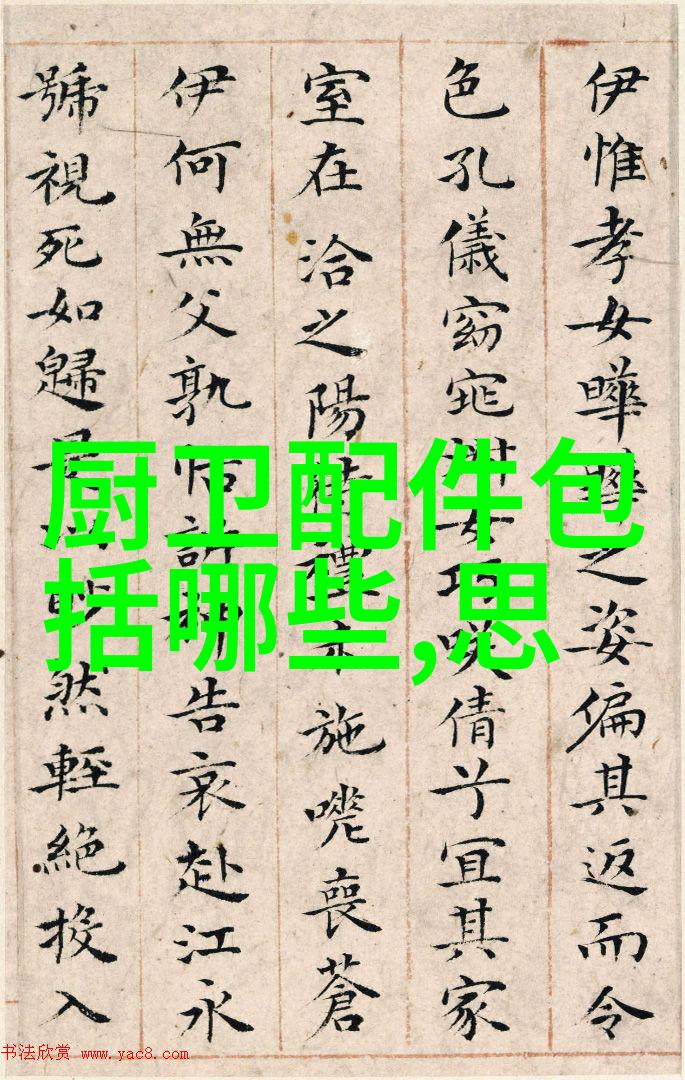 伊惟孝女曄曄之姿偏其返而令
色孔儀窈窕淑女巧咲倩兮宜其家
室在洽之陽待禮未施嗟喪蒼
伊何無父孰怙訴神告哀赴江永
號視死如歸是以眇然輕絕投入
厨卫配件包
括哪些,思
书法欣赏 www.yac8.com